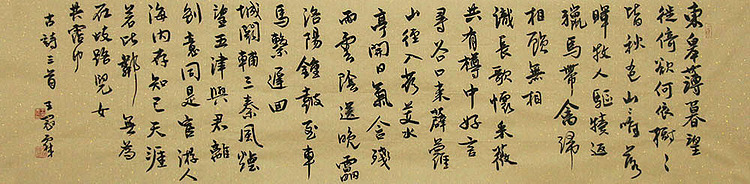 東皋薄暮望
徙倚欲何依樹〻
皆秋色山唯落
暉牧人驅犢返
獵馬帶禽歸
相顧無相
識長歌懷采薇
共有樽中好言
尋谷口來薜蘿
山徑入荷芰水
亭開日氣含殘
雨雲陰送晚雷
洛陽鐘鼓至車
馬繫遲回
城闕輔三秦風煙
望五津與君離
別意同是宦游人
海內存知己天涯
若比鄰無為
在歧路兒女
共霑巾
古詩三首